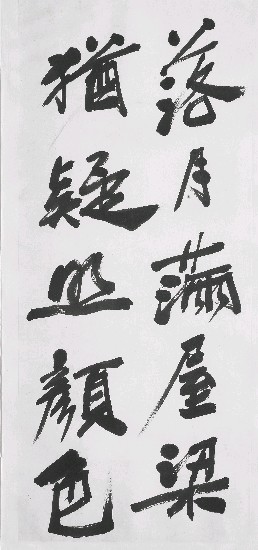 落月滿屋梁
猶疑照顏色